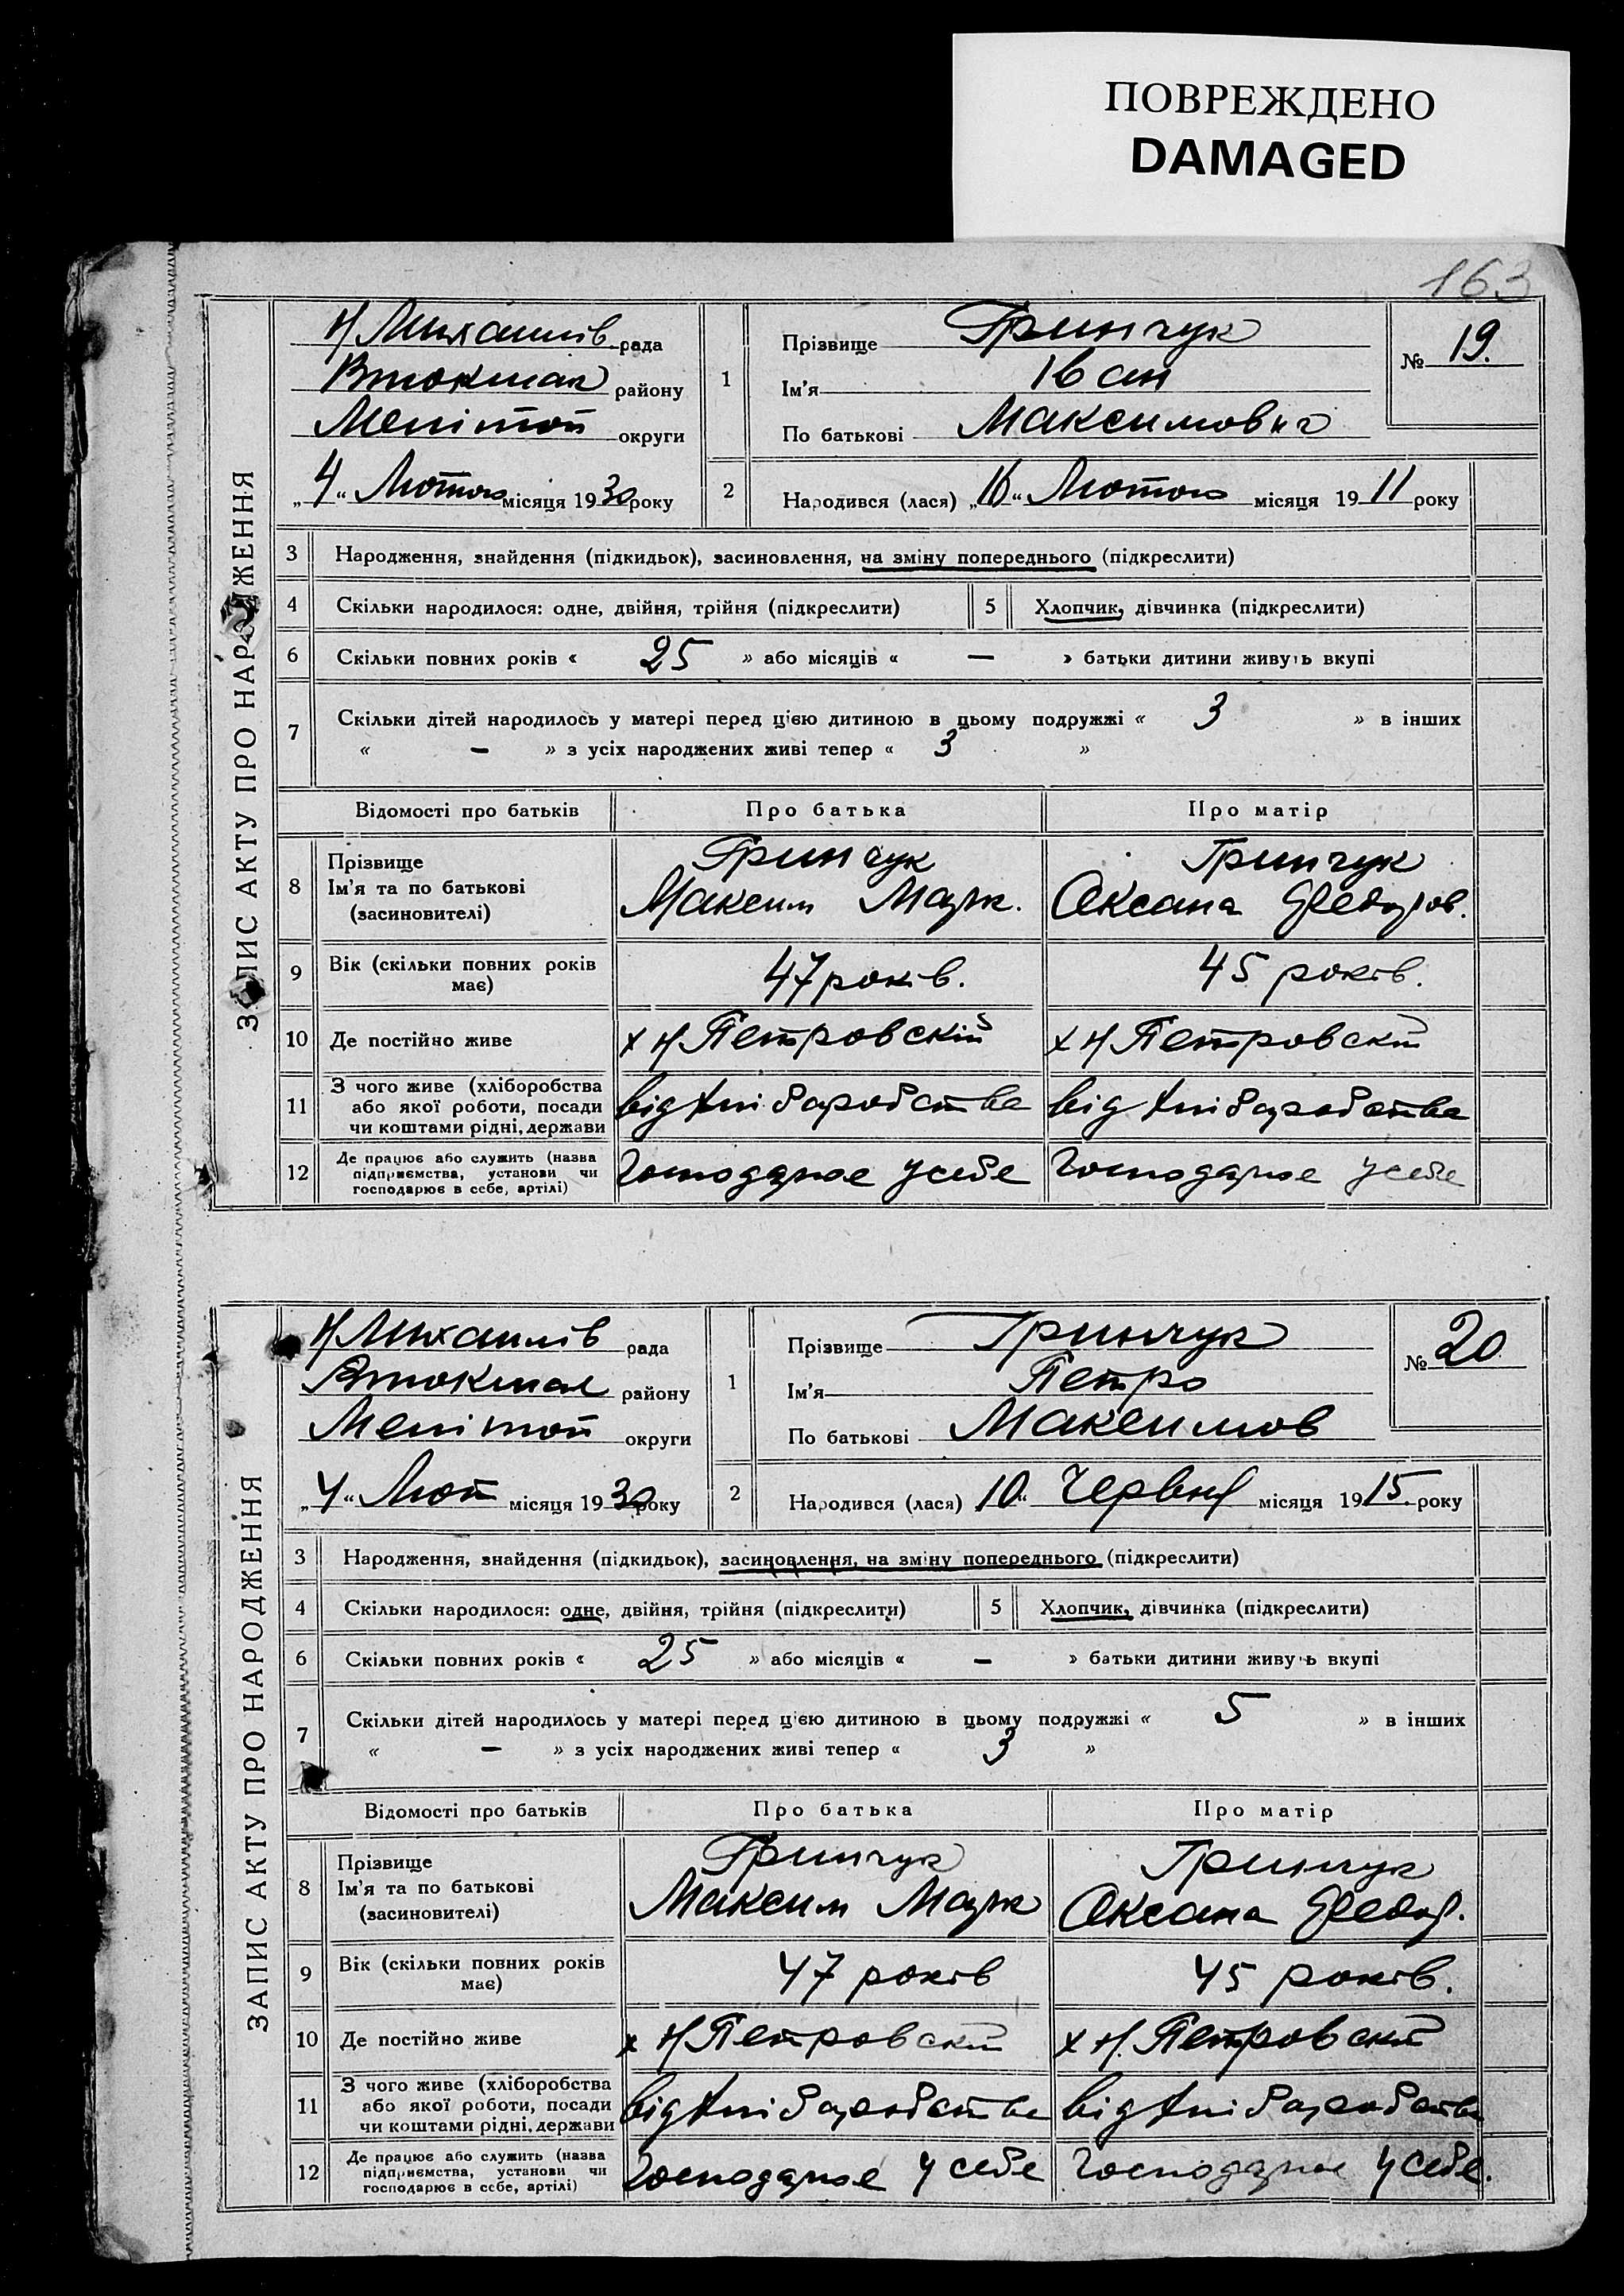 ПОВРЕЖДЕНО
DAMAGED
163
ЗАПИС АКТУ ПРО НАРОДЖЕННЯ
Н Михайлів рада
Втокмак району
Мелітоп округи
„4“ Лютого місяця 1930 року
1
Прізвище Грінчук
Ім'я Іван
По батькові Максимович
№ 19.
2
Народився (лася) „16“ Лютого місяця 1911 року
3 Народження, знайдення (підкидьок), засиновлення, на зміну попереднього (підкреслити)
4 Скільки народилося: одне, двійня, трійня (підкреслити) 5 Хлопчик, дівчинка (підкреслити)
6 Скільки повних років « 25 » або місяців « — » батьки дитини живуть вкупі
7 Скільки дітей народилось у матері перед цією дитиною в цьому подружжі « 3 » в інших
« — » з усіх народжених живі тепер « 3 »
Відомості про батьків Про батька Про матір
8 Прізвище Грінчук Грінчук
Ім'я та по батькові Максим Марк. Оксана Федоров.
(засновителі)
9 Вік (скільки повних років має) 47 років. 45 років.
10 Де постійно живе х Н Петровскій х Н Петровскій
11 З чого живе (хліборобства
або якої роботи, посади від хліборобства від хліборобства
чи коштами рідні, держави
12 Де працює або служить (назва
підприємства, установи чи Господарює у себе Господарює у себе
господарює в себе, артілі)
ЗАПИС АКТУ ПРО НАРОДЖЕННЯ
Н Михайлів рада
Втокмак району
Мелітоп округи
„4“ Лют місяця 1930 року
1
Прізвище Грінчук
Ім'я Петро
По батькові Максимов
№ 20
2
Народився (лася) 10“ Червня місяця 1915 року
3 Народження, знайдення (підкидьок), засиновлення, на зміну попереднього (підкреслити)
4 Скільки народилося: одне, двійня, трійня (підкреслити) 5 Хлопчик, дівчинка (підкреслити)
6 Скільки повних років « 25 » або місяців « — » батьки дитини живуть вкупі
7 Скільки дітей народилось у матері перед цією дитиною в цьому подружжі « 5 » в інших
« — » з усіх народжених живі тепер « 3 »
Відомості про батьків Про батька Про матір
8 Прізвище Грінчук Грінчук
Ім'я та по батькові Максим Марк Оксана Федор.
(засиновителі)
9 Вік (скільки повних років має) 47 років 45 років.
10 Де постійно живе х Н Петровскій х Н. Петровскій
11 З чого живе (хліборобства
або якої роботи, посади від хліборобства від хліборобства
чи коштами рідні, держави
12 Де працює або служить (назва
підприємства, установи чи Господарює у себе Господарює у себе.
господарює в себе, артілі)